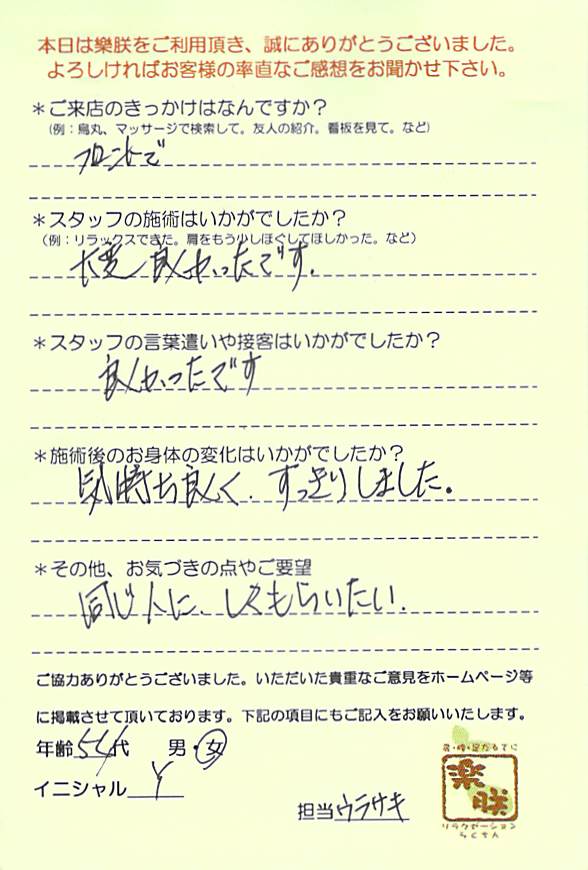 本日は樂朕をご利用頂き、誠にありがとうございました。
よろしければお客様の率直なご感想をお聞かせ下さい。
＊ご来店のきっかけはなんですか？
（例：烏丸、マッサージで検索して。友人の紹介。看板を見て。など）
フロントで
＊スタッフの施術はいかがでしたか？
（例：リラックスできた。肩をもう少しほぐしてほしかった。など）
大変良かったです。
＊スタッフの言葉遣いや接客はいかがでしたか？
良かったです
＊施術後のお身体の変化はいかがでしたか？
気持ち良く、すっきりしました。
＊その他、お気づきの点やご要望
同じ人に、してもらいたい。
ご協力ありがとうございました。いただいた貴重なご意見をホームページ等
に掲載させて頂いております。下記の項目にもご記入をお願いいたします。
年齢 代 男・女
イニシャル Y
担当 ウラサキ
樂朕
リラクゼーション
らくちん